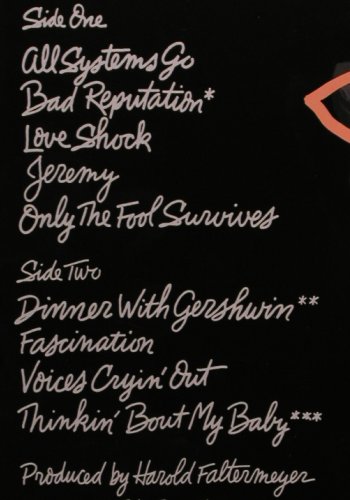 Side One
All Systems Go
Bad Reputation*
Love Shock
Jeremy
Only The Fool Survives
Side Two
Dinner With Gershwin**
Fascination
Voices Cryin' Out
Thinkin' Bout My Baby***
Produced by Harold Faltermeyer